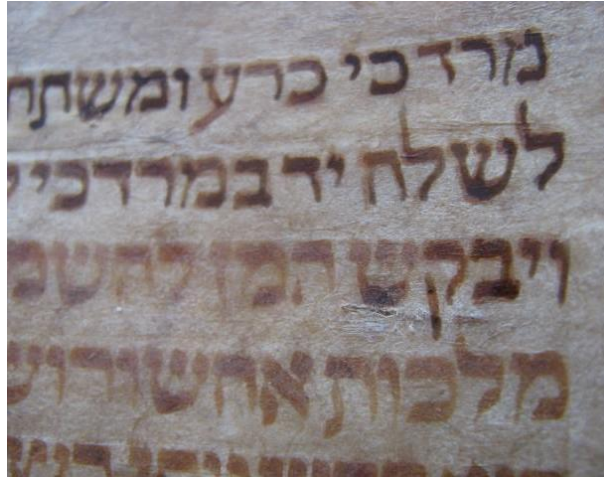 מרדכי כרע ומשתח
לשלח יד במרדכי
ויבקש המן להשמ
מלכות אחשורוש